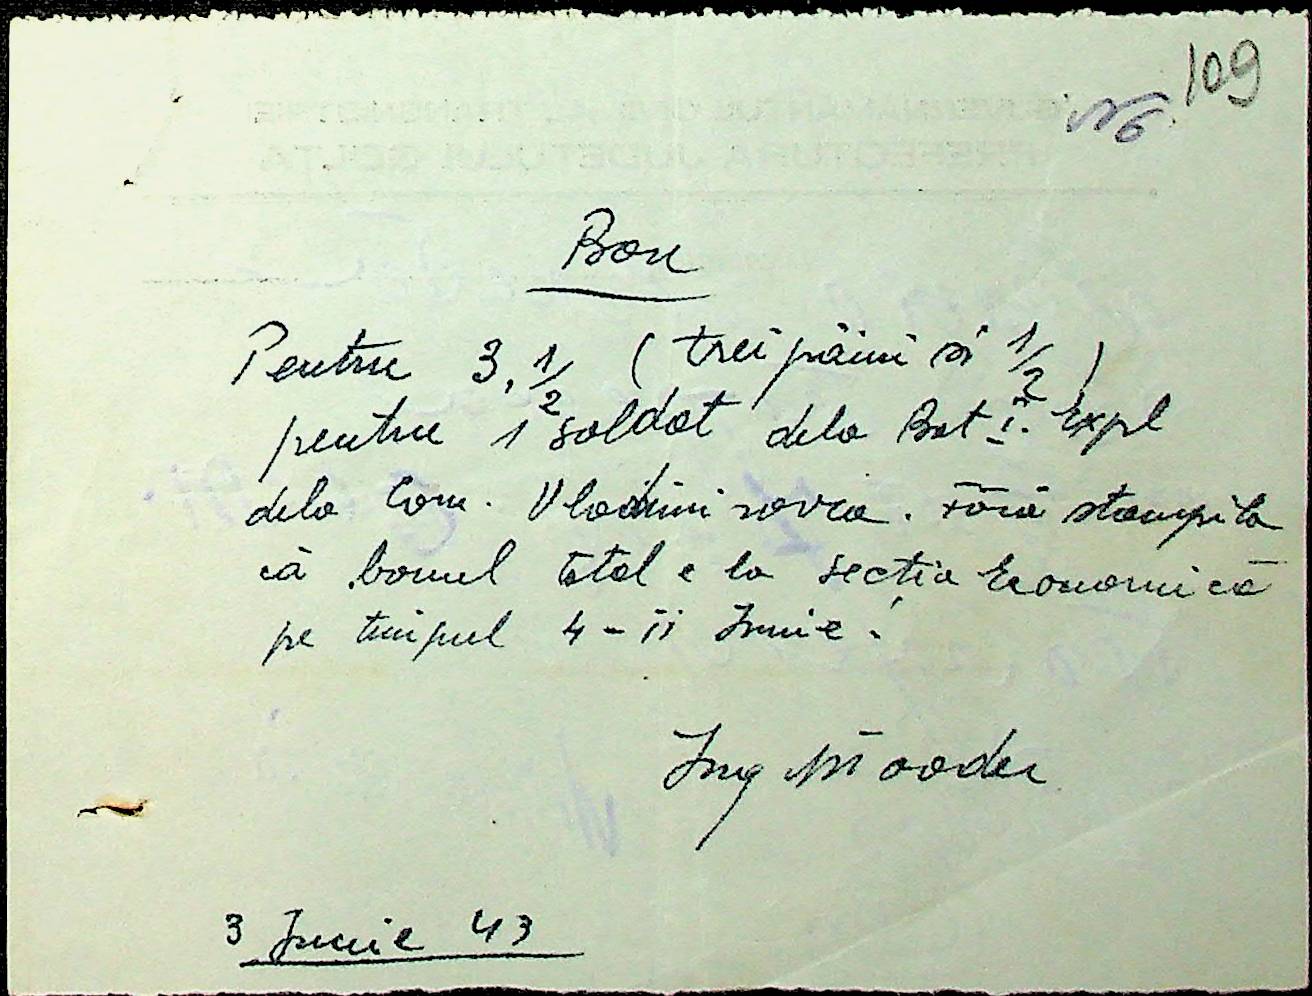 109
No.
Bon
Pentru 3, 1/2 (trei pâini si 1/2)
pentru 1 soldat dela Bat I. Expl
dela Com. Vladimirovca. fără stampila
că bonul total e la secția Economică
pe timpul 4-11 Iunie.
Ing
3 Iunie 43